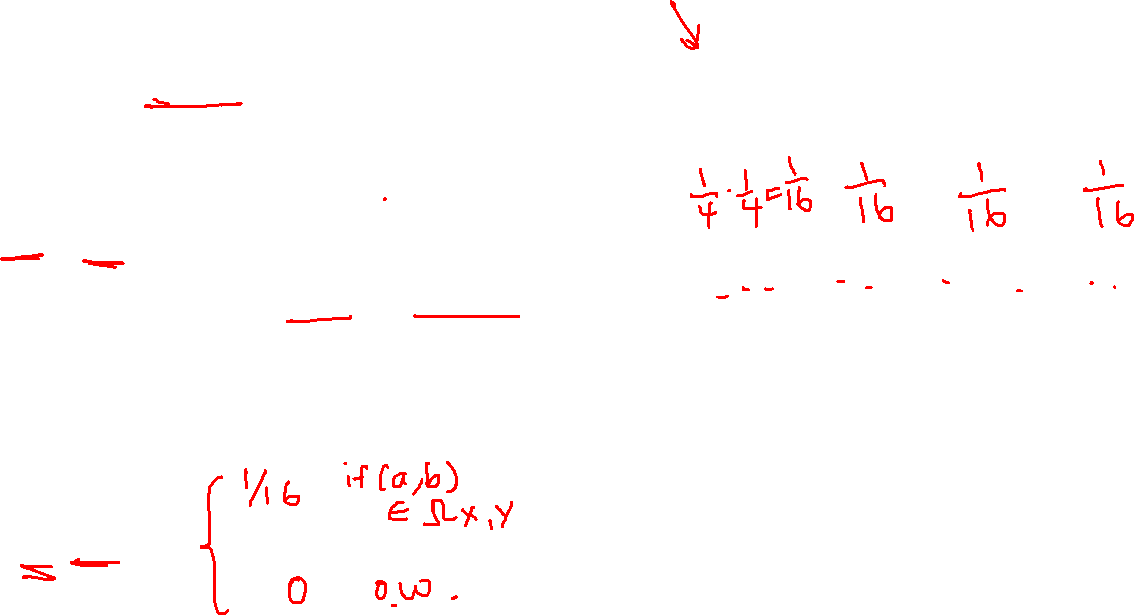 1/4 · 1/4 = 1/16 1/16 1/16 1/16
1/16 if (a,b)
∈ Ω X,Y
0 o.w.